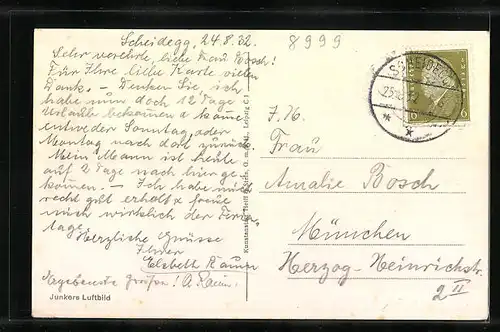 Scheidegg, 24.8.32.
8999
Sehr verehrte, liebe Frau Bosch!
Für Ihre liebe Karte vielen
Dank. – Denken Sie, ich
habe nun doch 12 Tage
Urlaub bekommen & komme
entweder Sonntag, oder
Montag nach dort zurück.
Mein Mann ist heute
auf 2 Tage nach hier ge-
kommen. – Ich habe mich
recht gut erholt & freue
mich wirklich der Ferien-
tage.
Herzliche Grüsse
Ihrer
Elsbeth
Junkers Luftbild
Leipzig C 1
SCHEIDEGG
6 6
I. H.
Frau
Amalie Bosch
München
Herzog-Heinrichstr.
2 II